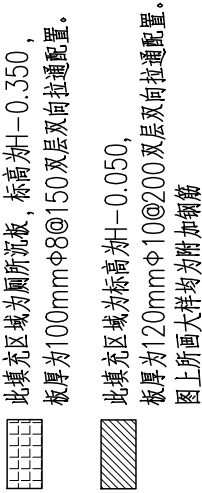 此填充区域为厕所沉板，标高为H-0.350，
板厚为100mmΦ8@150双层双向拉通配置。
此填充区域为标高为H-0.050，
板厚为120mmΦ10@200双层双向拉通配置。
图上所画大样均为附加钢筋